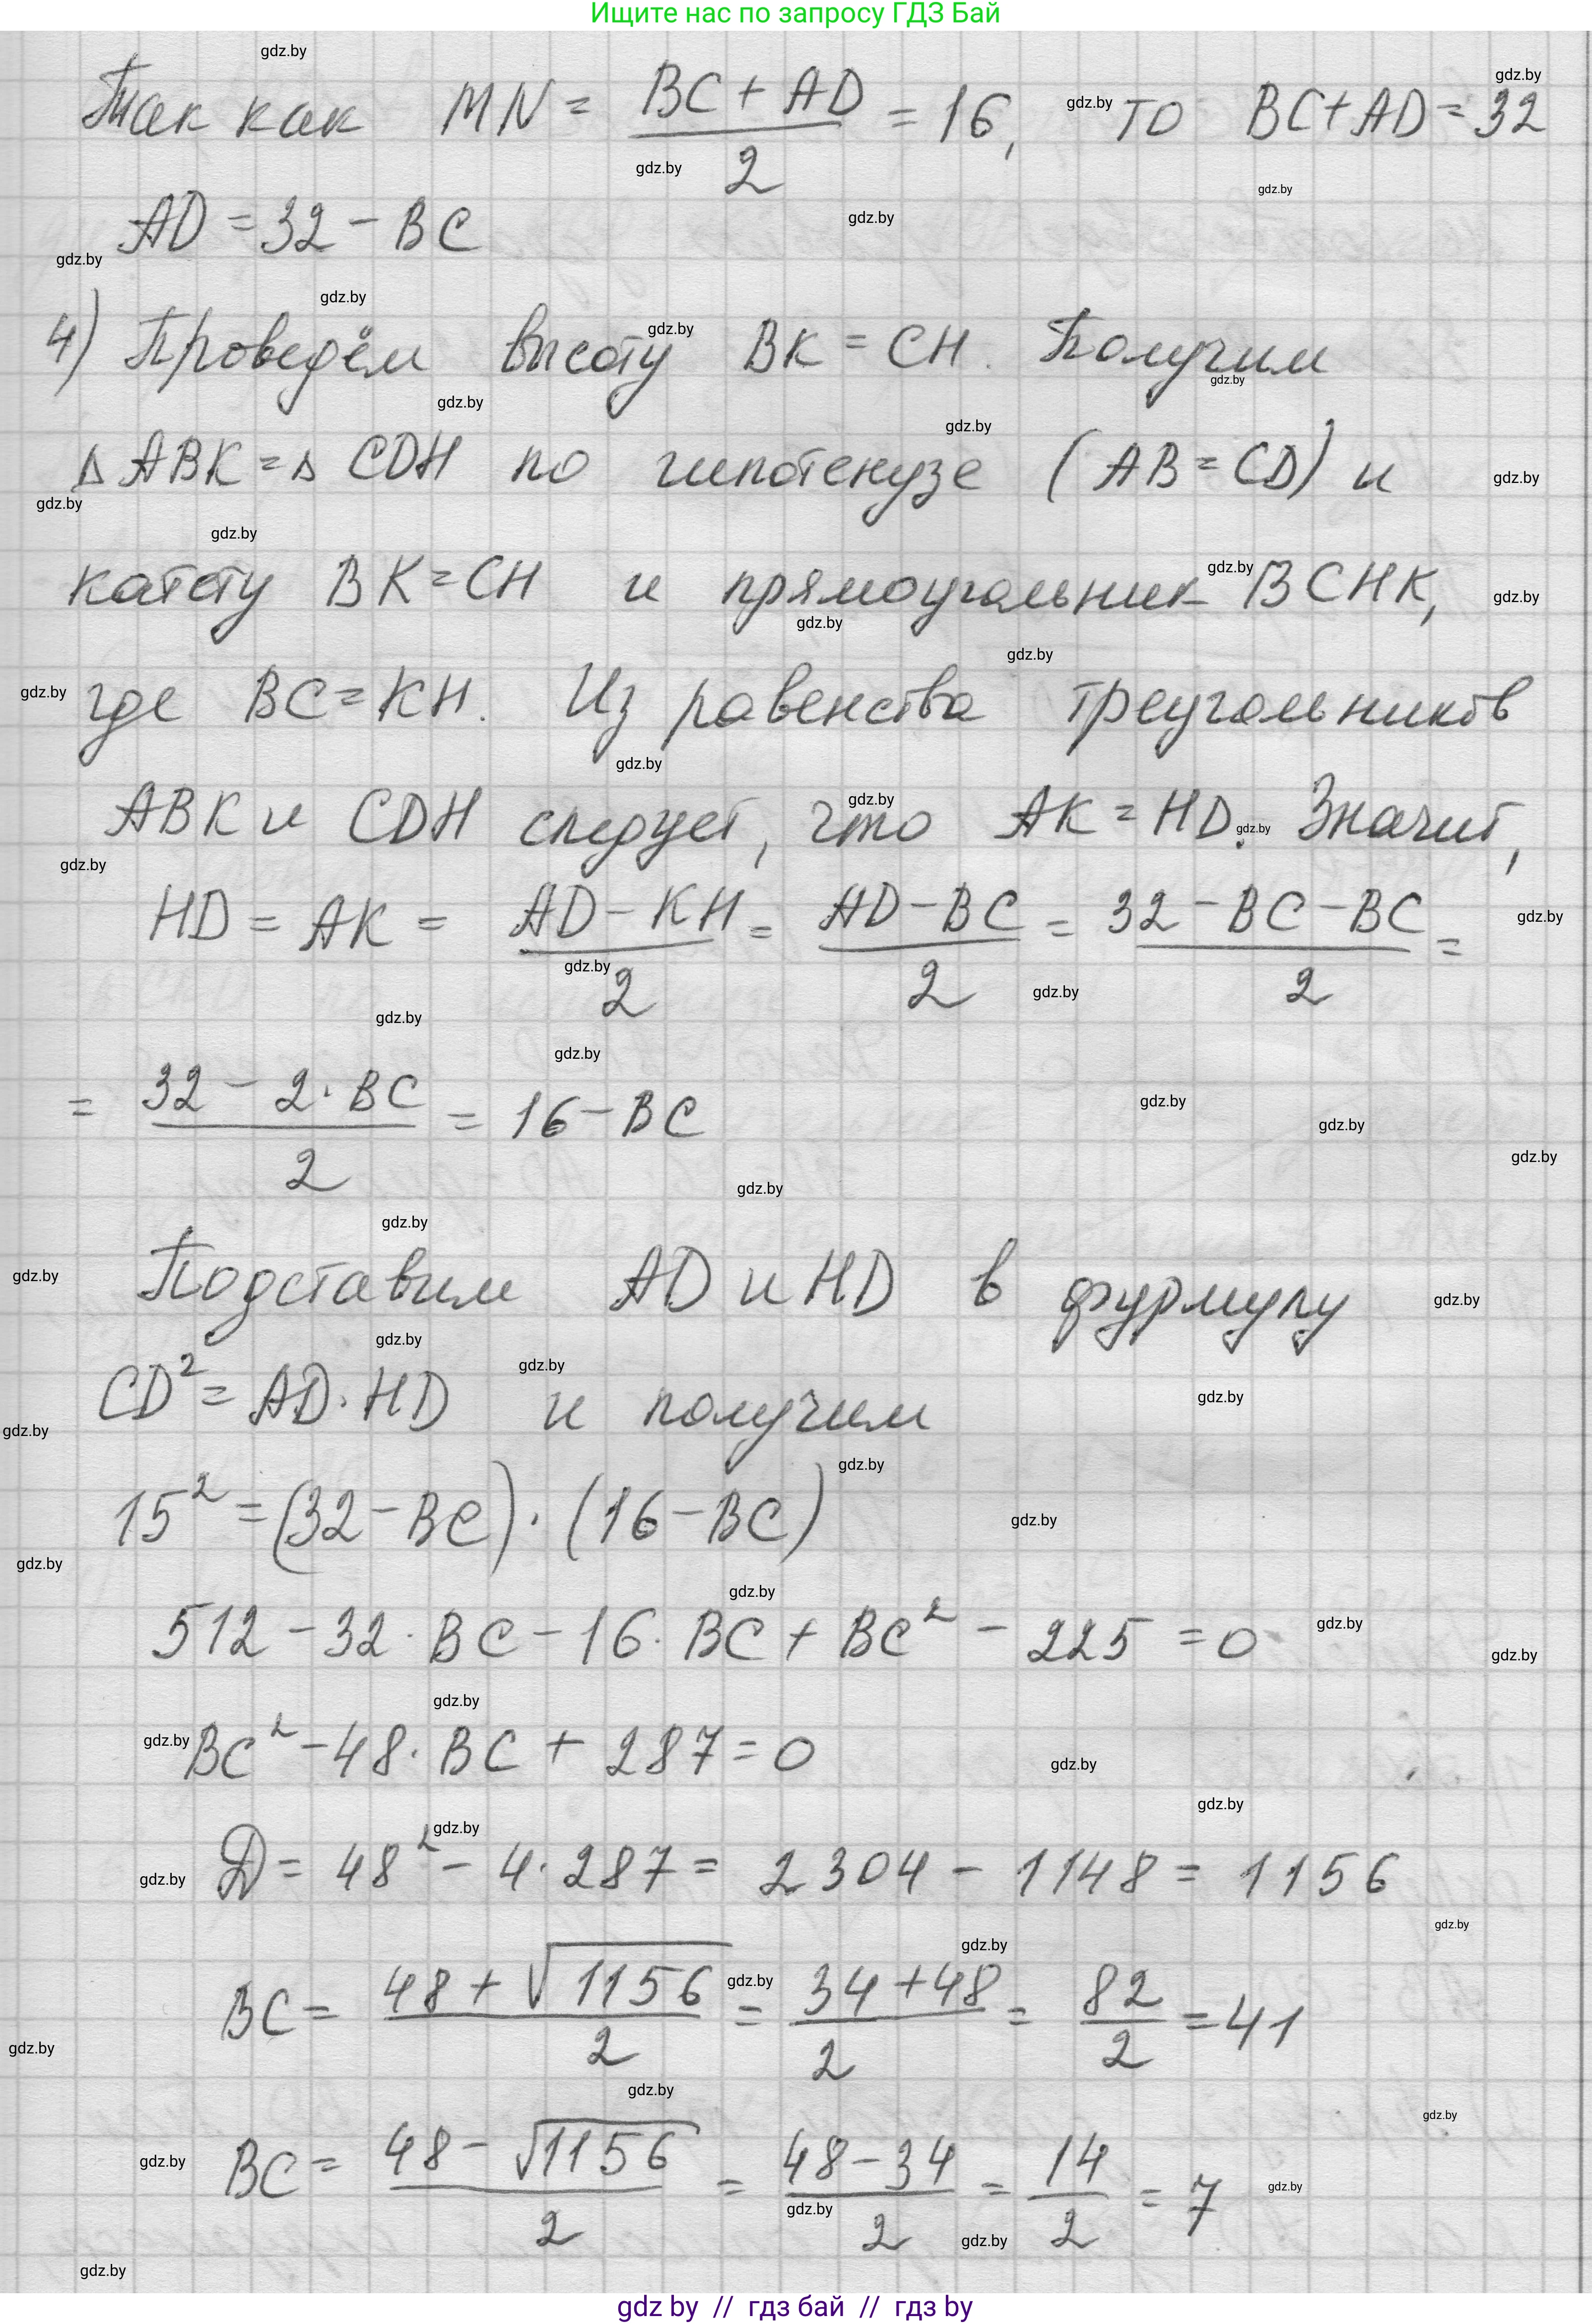 Ищите нас по запросу ГДЗ Бай
Так как MN = (BC + AD)/2 = 16, то BC+AD=32
AD = 32 - BC
4) Проведём высоту BK = CH. Получим
Δ ABK = Δ CDH по гипотенузе (AB = CD) и
катету BK = CH и прямоугольник BCHK,
где BC = KH. Из равенства треугольников
ABK и CDH следует, что AK = HD. Значит,
HD = AK = (AD - KH)/2 = (AD - BC)/2 = (32 - BC - BC)/2 =
= (32 - 2·BC)/2 = 16 - BC
Подставим AD и HD в фурмулу
CD² = AD·HD и получим
15² = (32 - BC)·(16 - BC)
512 - 32·BC - 16·BC + BC² - 225 = 0
BC² - 48·BC + 287 = 0
D = 48² - 4·287 = 2304 - 1148 = 1156
BC = (48 + √1156)/2 = (34 + 48)/2 = 82/2 = 41
BC = (48 - √1156)/2 = (48 - 34)/2 = 14/2 = 7
gdz by // гдз бай // гдз by